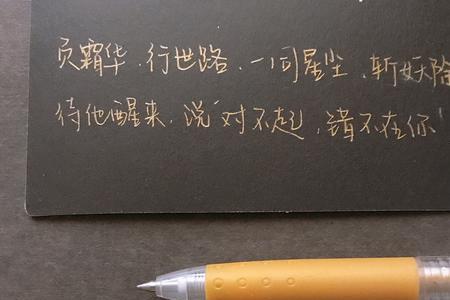 负霜华，行世路。一同星尘，斩妖除
待他醒来，说“对不起，错不在你”